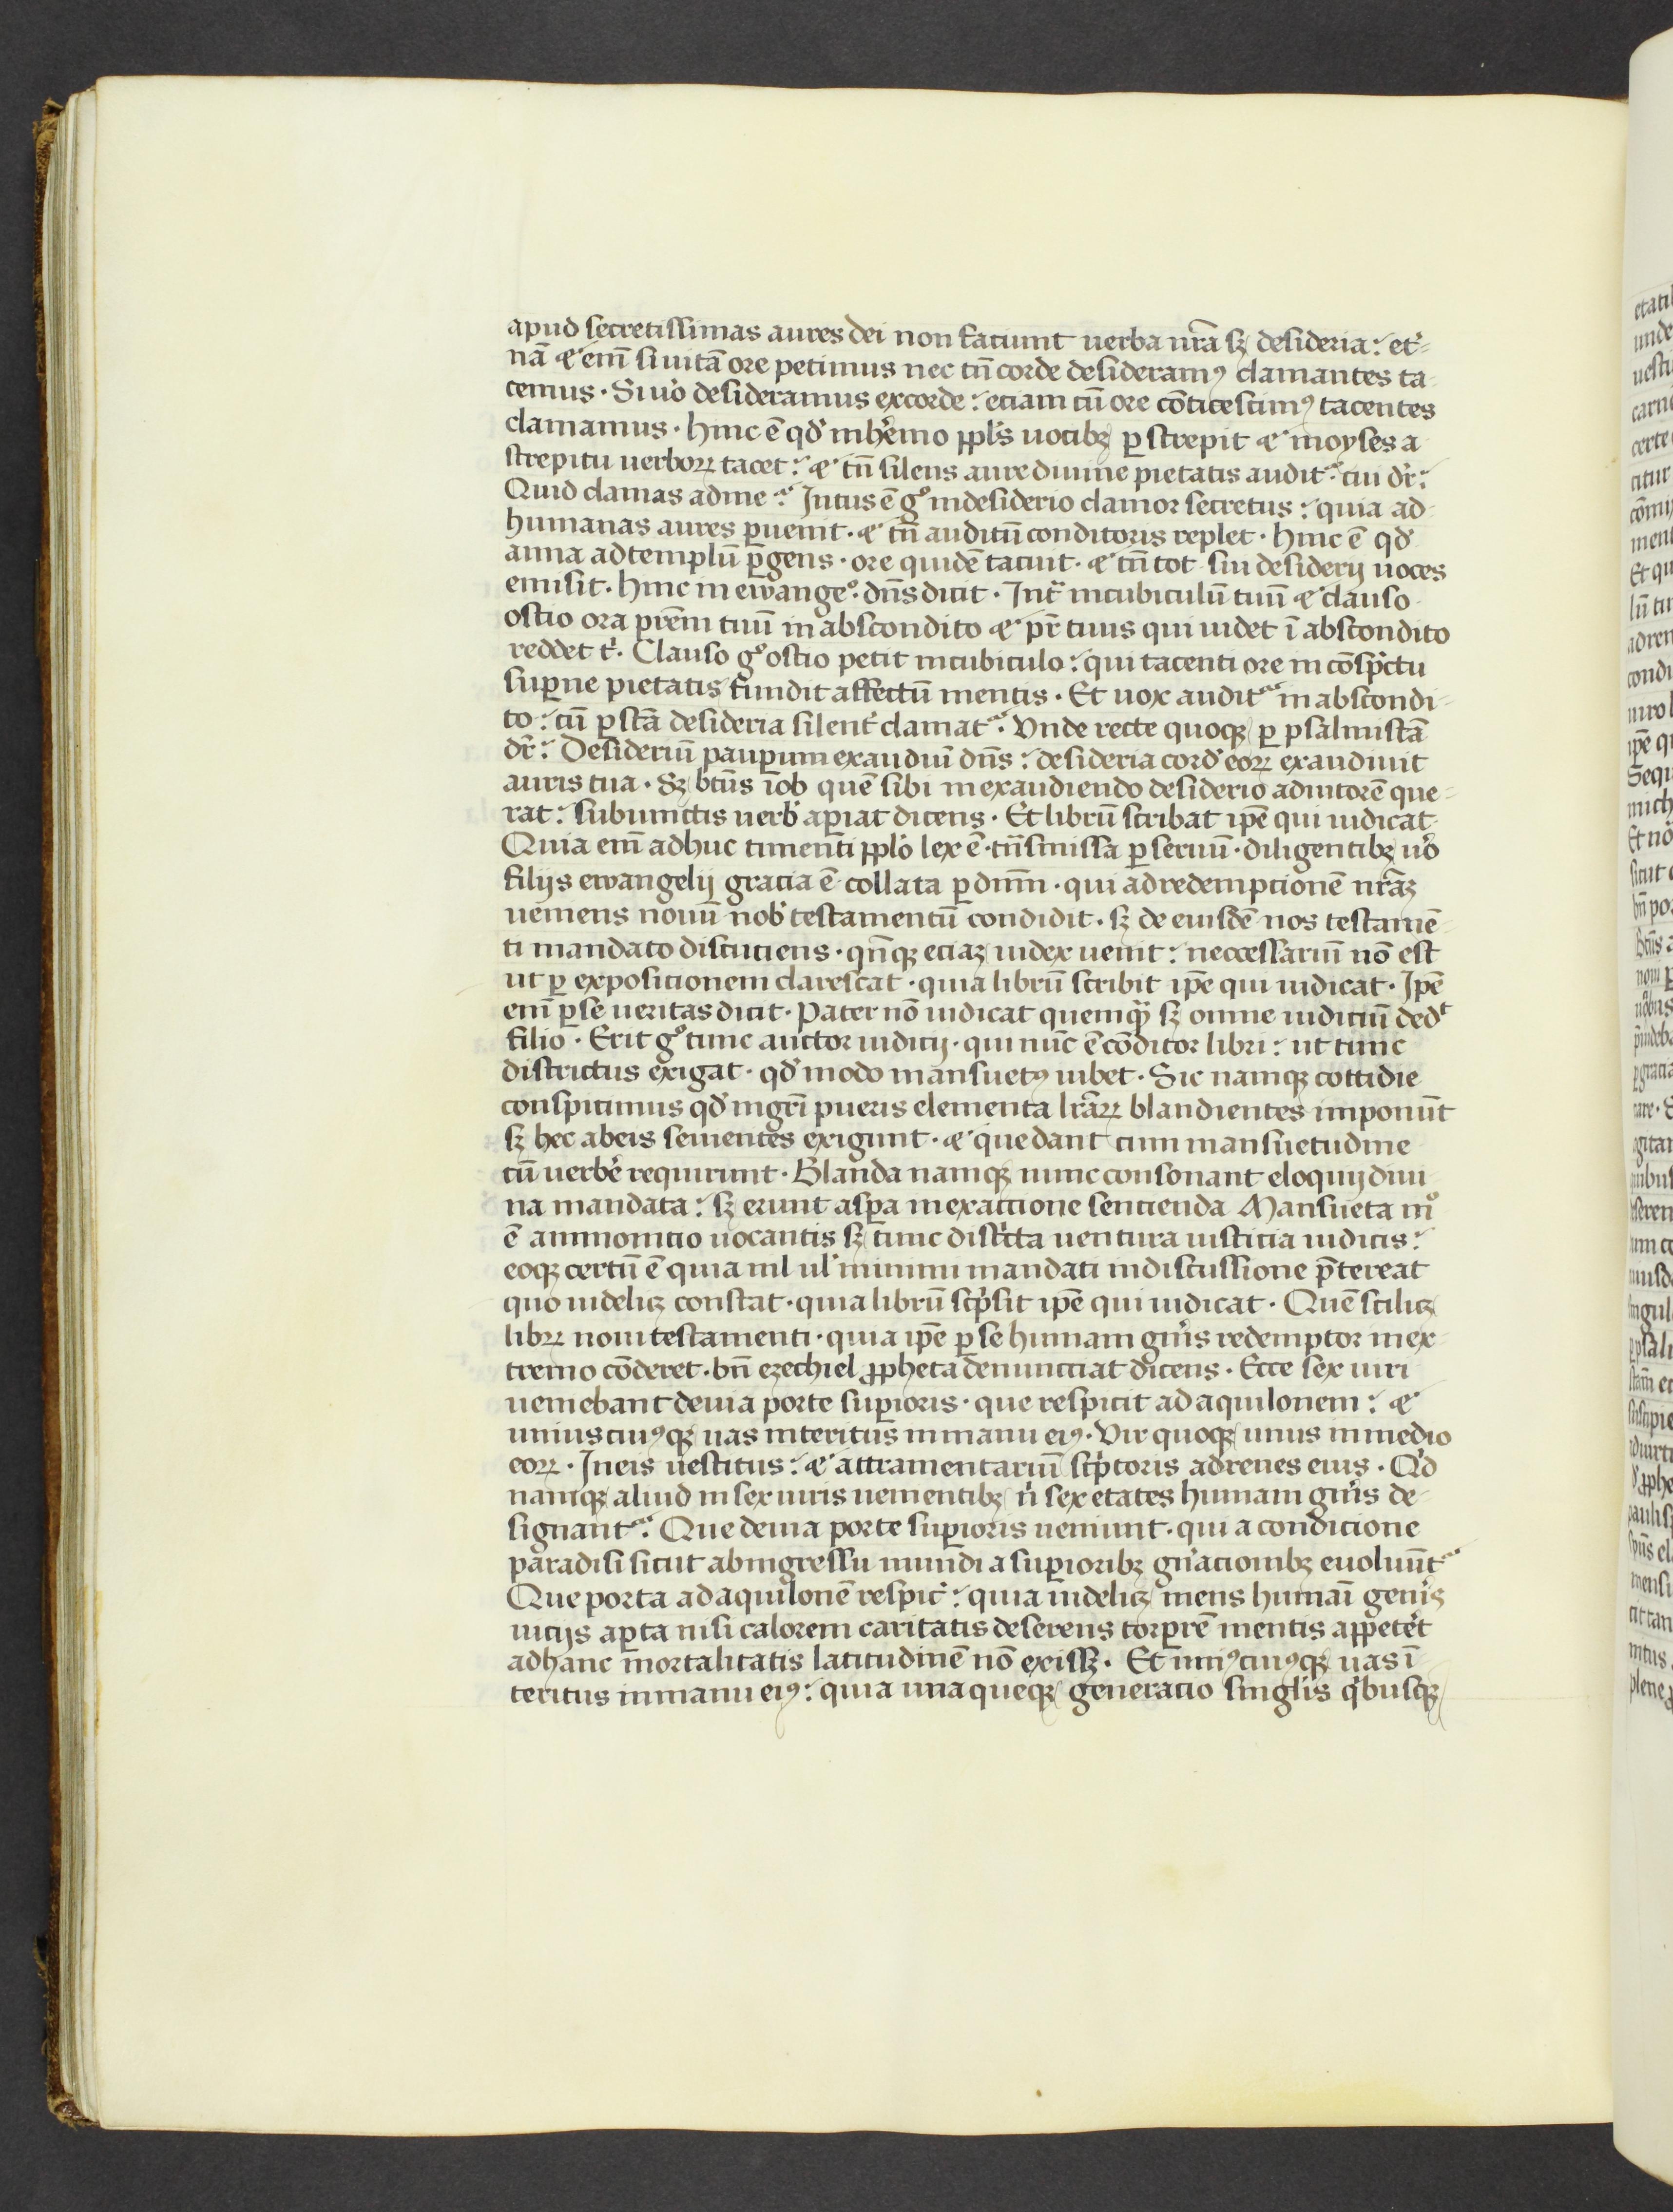 apud secretissimas aures dei non faciunt uerba nr̄a sꝫ desideria: et̾-
nā & em̄ si uitā ore petimus nec tn̄ corde desideramꝰ clamantes ta-
cemus · Si uo̾ desideramus ex corde: eciam cū ore cōticescimꝰ tacentes
clamamus · hinc ē qd̾ in he̾mo ppl̾s uocibꝫ ꝑstrepit & moyses a
strepitu uerboꝝ tacet: & tn̄ silens aure diuine pietatis audit᷑ · cui dr̄:
Quid clamas ad me: Intus ē gͦ in desiderio clamor secretus: quia ad
humanas aures ꝑuenit · & tn̄ auditū conditoris replet · hinc ē qd̾
anna ad templū ꝑgens · ore quidē tacuit · & tn̄ tot sui desiderij uoces
emisit · hinc in ewangeͦ · dn̄s dicit · Int̾ in cubiculū tuū & clauso
ostio ora pr̄em tuū in abscondito & pr̄ tuus qui uidet ī abscondito
reddet t̾ · Clauso gͦ ostio petit in cubiculo: qui tacenti ore in cōsp̄ctu
suꝑne pietatis fundit affectū mentis · Et uox audit᷑ in abscondi-
to: cū ꝑ sc̄a desideria silent̾ clamat᷑ · Vnde recte quoqꝫ ꝑ psalmistā
dr̄: Desideriū pauꝑum exaudiuī dn̄s: desideria cord̾ eoꝝ exaudiuit
auris tua · Sꝫ bt̄us iob quē sibi in exaudiendo desiderio adiutorē que-
rat: subiunctis uerb̾ aꝑiat dicens · Et librū scribat ip̄e qui iudicat
Quia em̄ adhuc timenti pplo̾ lex ē · tn̄smissa ꝑ seruū · diligentibꝫ uo̾
filijs ewangelij gracia ē collata ꝑ dnm̄ · qui ad redempcionē nr̄aꝫ
ueniens nouū nob̾ testamentū condidit · sꝫ de eiusdē nos testamē-
ti mandato discuciens · qn̄qꝫ eciaꝫ iudex uenit: neccessariū nō est
ut ꝑ exposicionem clarescat · quia librū scribit ip̄e qui iudicat · Ip̄e
em̄ ꝑ se ueritas dicit · Pater nō iudicat quemqᷓ sꝫ omne iudiciū dedͭ
filio · Erit gͦ tunc auctor iudicij · qui nūc ē cōditor libri: ut tunc
districtus exigat · qd̾ modo mansuetꝰ iubet · Sic namqꝫ cottidie
conspicimus qd̾ mgr̄i pueris elementa lr̄aꝝ blandientes imponūt
sꝫ hec ab eis seuientes exigunt · & que dant cum mansuetudine
cū uerbe̾ requirunt · Blanda namqꝫ nunc consonant eloquij diui
na mandata: sꝫ erunt asꝑa in exactione sentienda Mansueta mͦ
ē ammonicio uocantis sꝫ tunc dist̾cta uentura iusticia iudicis:
eoqꝫ certū ē quia nil ul̾ minimi mandati indiscussione p̄tereat
quo uidelicꝫ constat · quia librū sc̾psit ip̄e qui iudicat · Quē scilicꝫ
libꝝ noui testamenti · quia ip̄e ꝑ se humani gn̾is redemptor in ex-
tremo cōderet · bn̄ ezechiel ꝓpheta denunctiat dicens · Ecce sex uiri
ueniebant de uia porte suꝑioris · que respicit ad aquilonem: &
uniuscuiꝰqꝫ uas interitus in manu eiꝰ · Vir quoqꝫ unus in medio
eoꝝ · Ineis uestitus: & attramentariū sc̾ptoris ad renes eius · Qd̾
namqꝫ aliud in sex uiris uenientibꝫ n̾ sex etates humani gn̾is de-
signant᷑ · Que de uia porte suꝑioris ueniunt · qui a condicione
paradisi sicut ab ingressu mundi a suꝑioribꝫ gn̾acionibꝫ euoluūt᷑
Que porta ad aquilonē respic̾: quia uidelicꝫ mens humaī gen̾is
uicijs aꝑta nisi calorem caritatis deserens torꝑrē mentis appetēt
ad hanc mortalitatis latitudinē nō exissꝫ · Et uniꝰcuiꝰqꝫ uas ī
teritus in manu eiꝰ: quia unaqueqꝫ generacio singl̾is qͥbusqꝫ